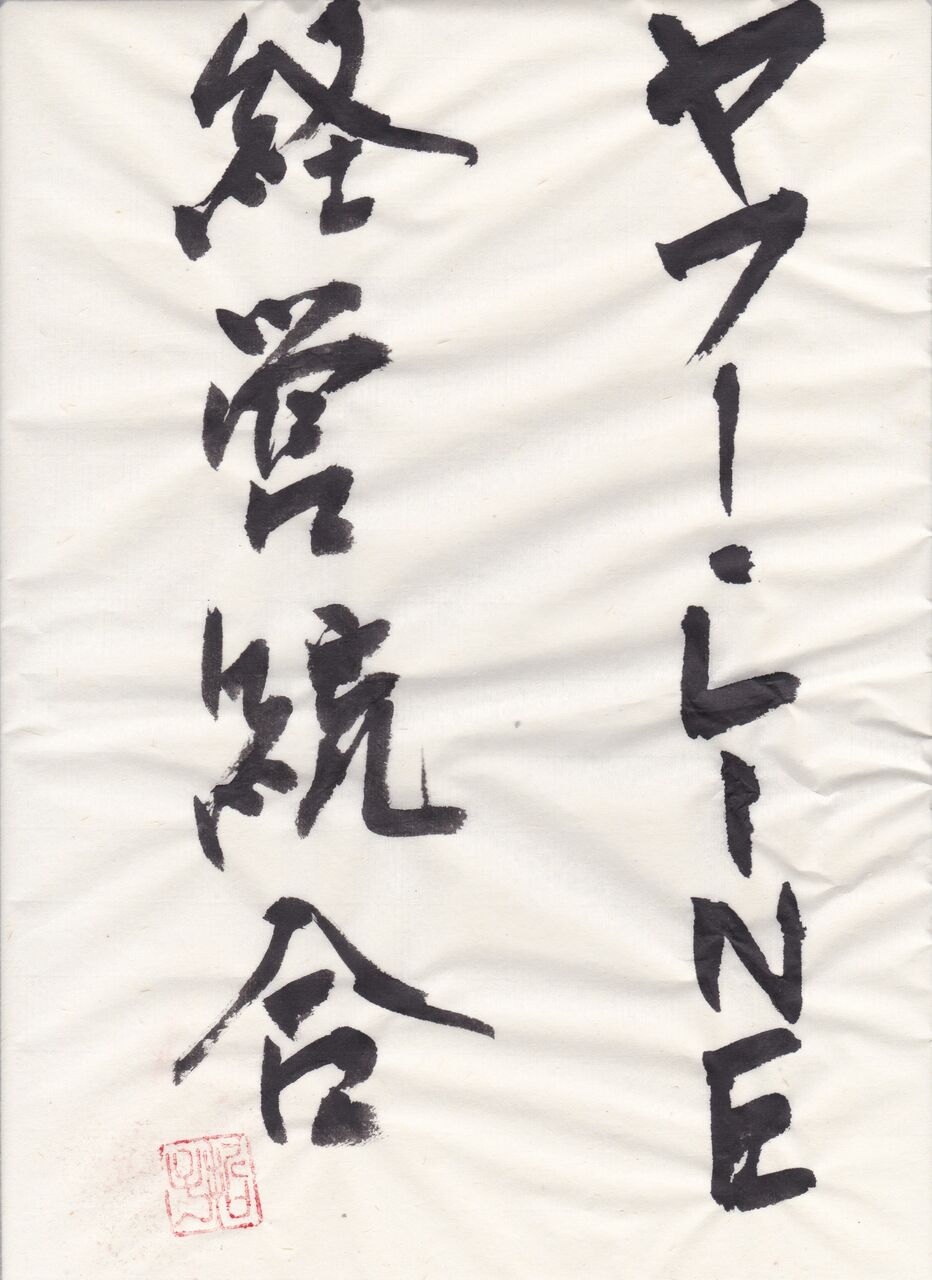 ヤフー・LINE
経営統合